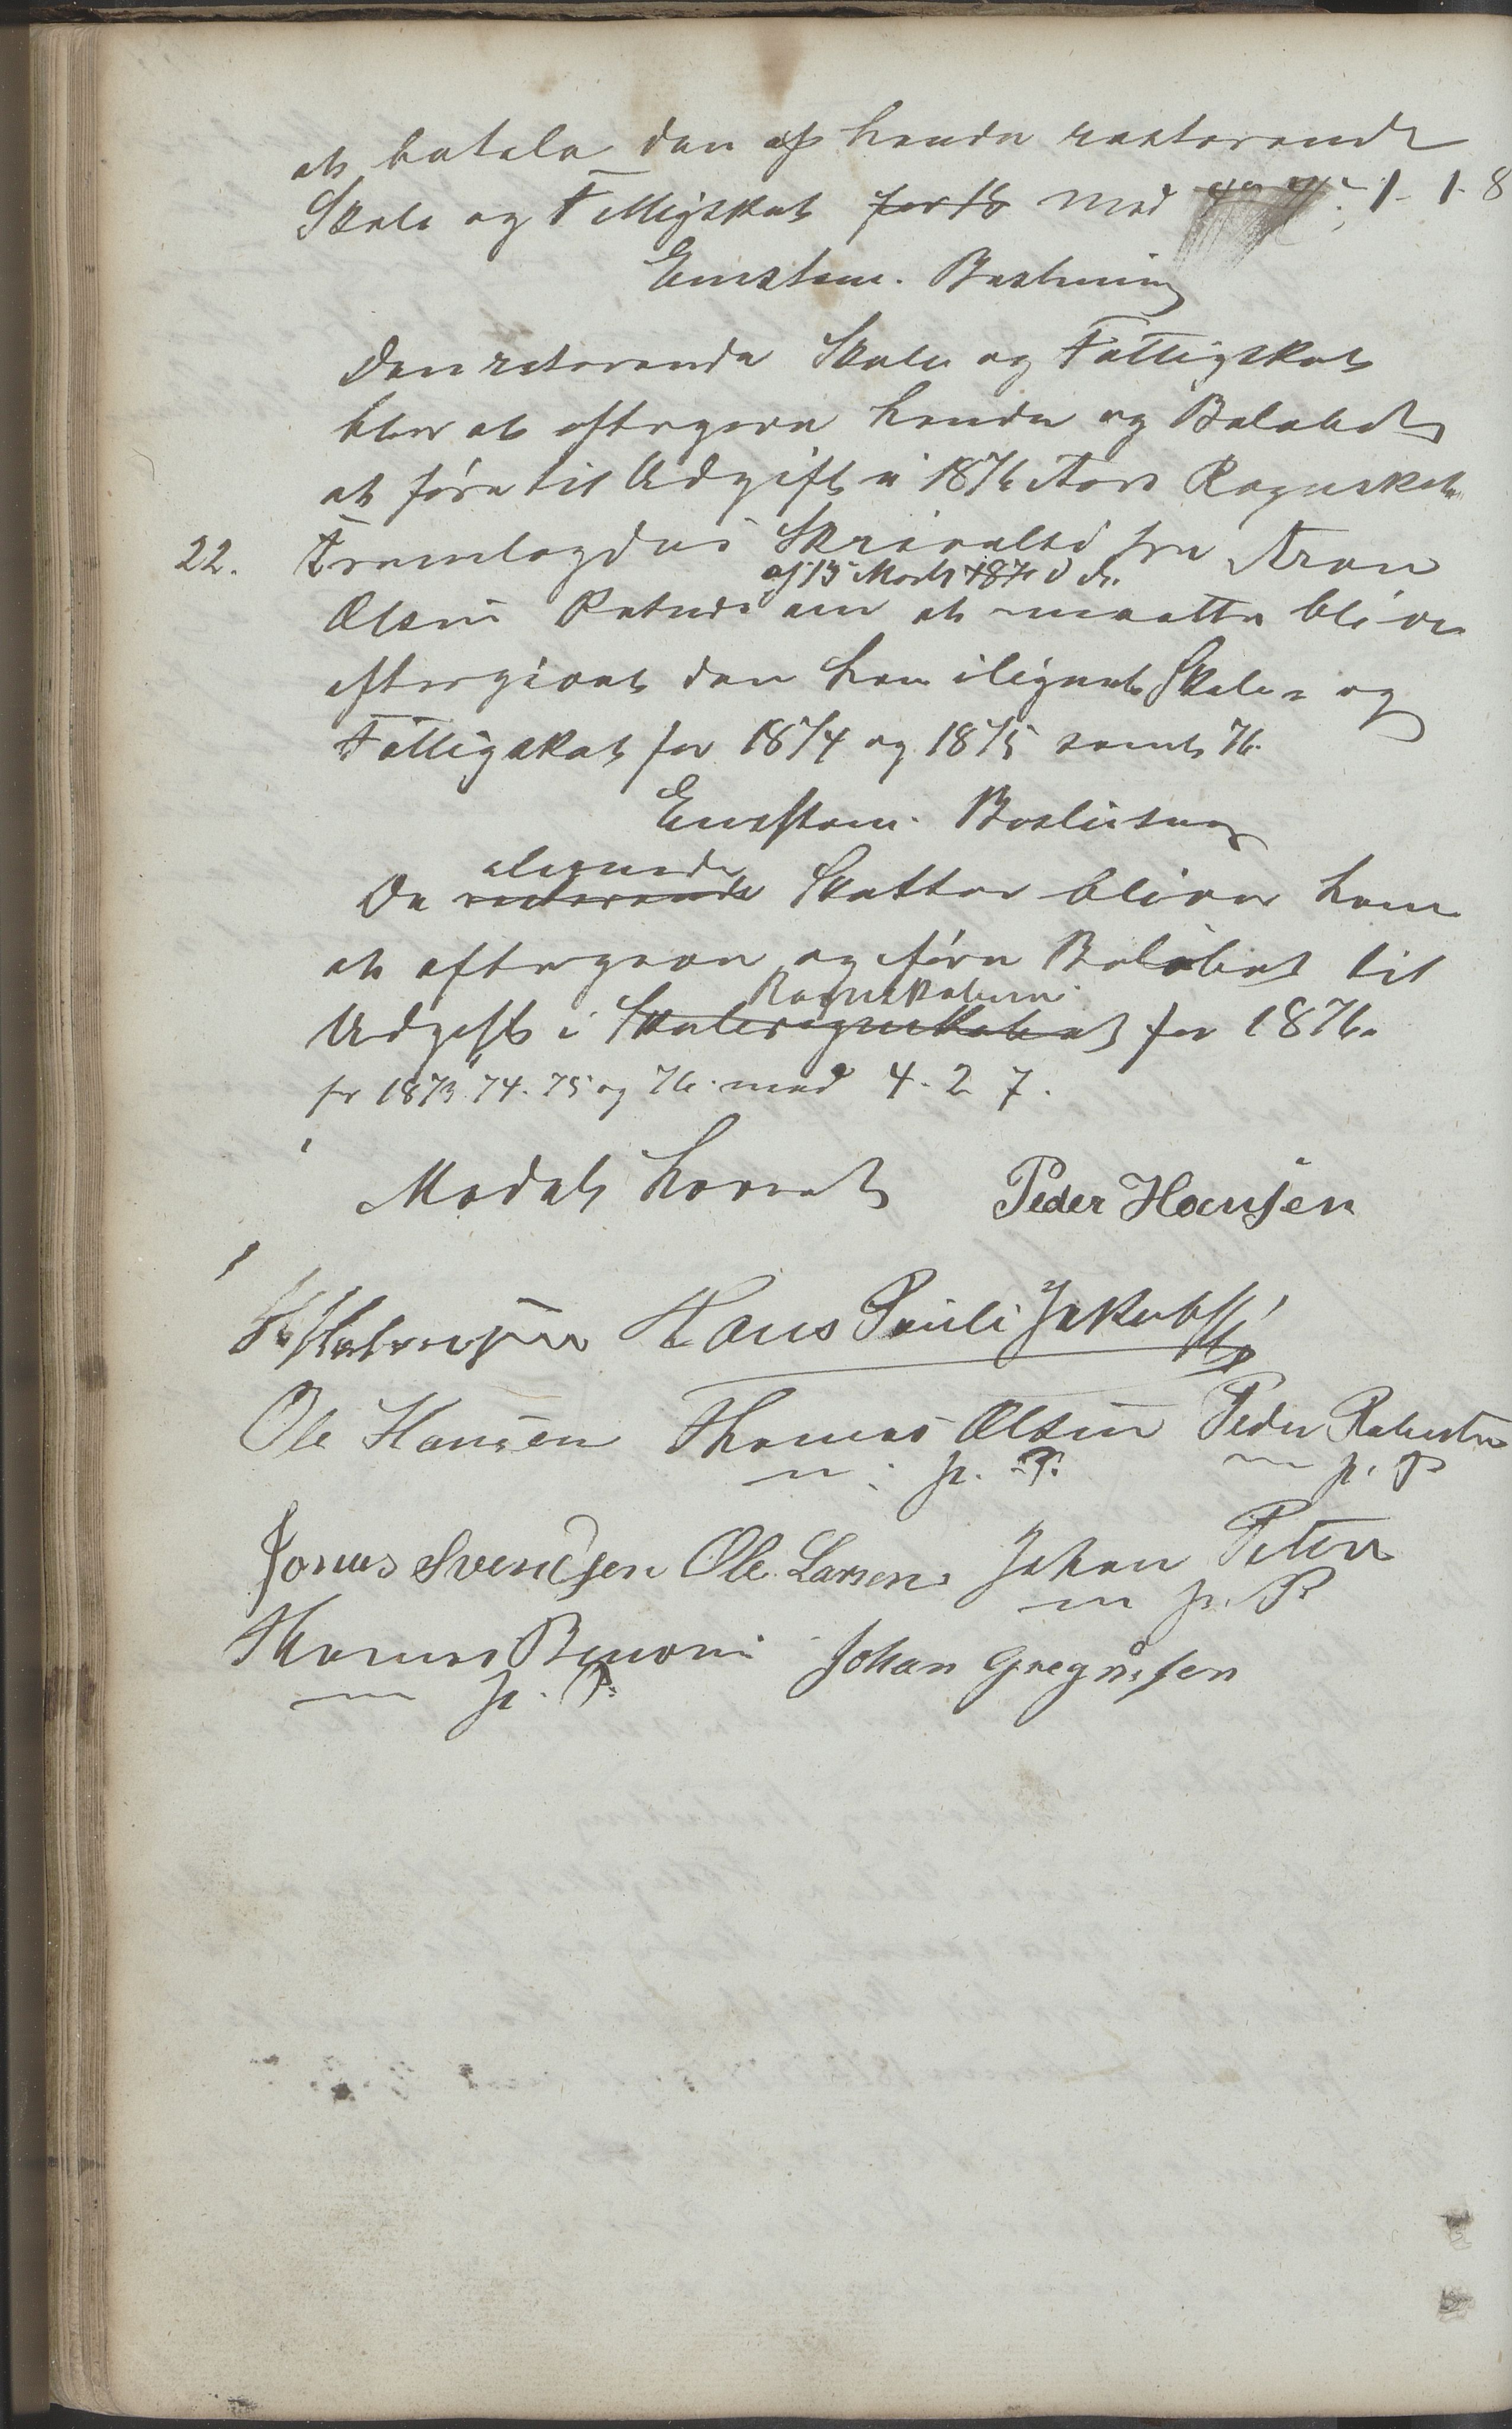 at betale den af hende resterende
Skole og Fattigskat for 18 med 1-1-8
Enstem. Beslutning
Den resterende Skole og Fattigskat
bliver at eftergive hende og Beløbet
at føre til Udgift i 1876 Aars Regnskab
22. Fremlagdes Skrivelse fra Aron
af 13 Marts 1876
Olsen om at maatte blive
eftergivet den ham ilignet Skole- og
Fattigskat for 1874 og 1875 samt 76.
Enstem. Beslutning
ilignede
De resterende Skatter bliver ham
at eftergive og føre Beløbet til
Regnskaberne
Udgift i Skoleregnskabet for 1876.
for 1873 74. 75 og 76. med 4-2 7.
Mødet hævet Peder Hansen
Hans Pauli Jakobsen
Ole Hansen Thomas Olsen Peder
m. p. P. m p. P
Jonas Svendsen Ole Larsen Johan Peter
m p. P.
Thomas Benoni Johan Gregusen
m p. P.